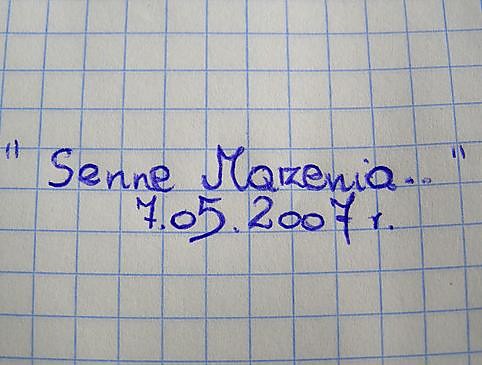 " Senne Marzenia... "
7.05.2007 r.